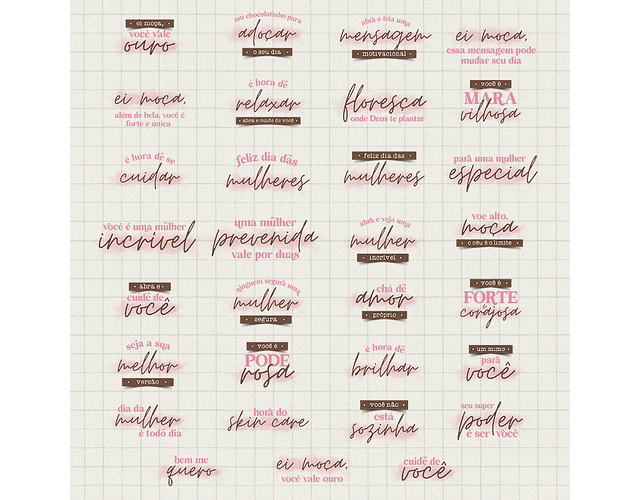 • ei moça, •
você vale
ouro
um chocolatinho para
adoçar
• o seu dia •
abra e leia uma
mensagem
• motivacional •
ei moça,
essa mensagem pode
mudar seu dia
ei moça,
além de bela, você é
forte e única
é hora de
relaxar
• abra e cuide de você •
floresça
onde Deus te plantar
• você é •
MARA
vilhosa
é hora de se
cuidar
feliz dia das
mulheres
• feliz dia das •
mulheres
para uma mulher
especial
você é uma mulher
incrível
uma mulher
prevenida
vale por duas
abra e veja uma
mulher
• incrível •
voe alto,
moça
• o céu é o limite •
• abra e •
cuide de
você
ninguem segura uma
mulher
• segura •
chá de
amor
• próprio •
• você é •
FORTE
corajosa
seja a sua
melhor
• versão •
• você é •
PODE
rosa
é hora de
brilhar
• um mimo •
para
você
dia da
mulher
é todo dia
hora do
skin care
• você não •
está
sozinha
seu super
poder
é ser você
bem me
quero
ei moça,
você vale ouro
cuide de
você